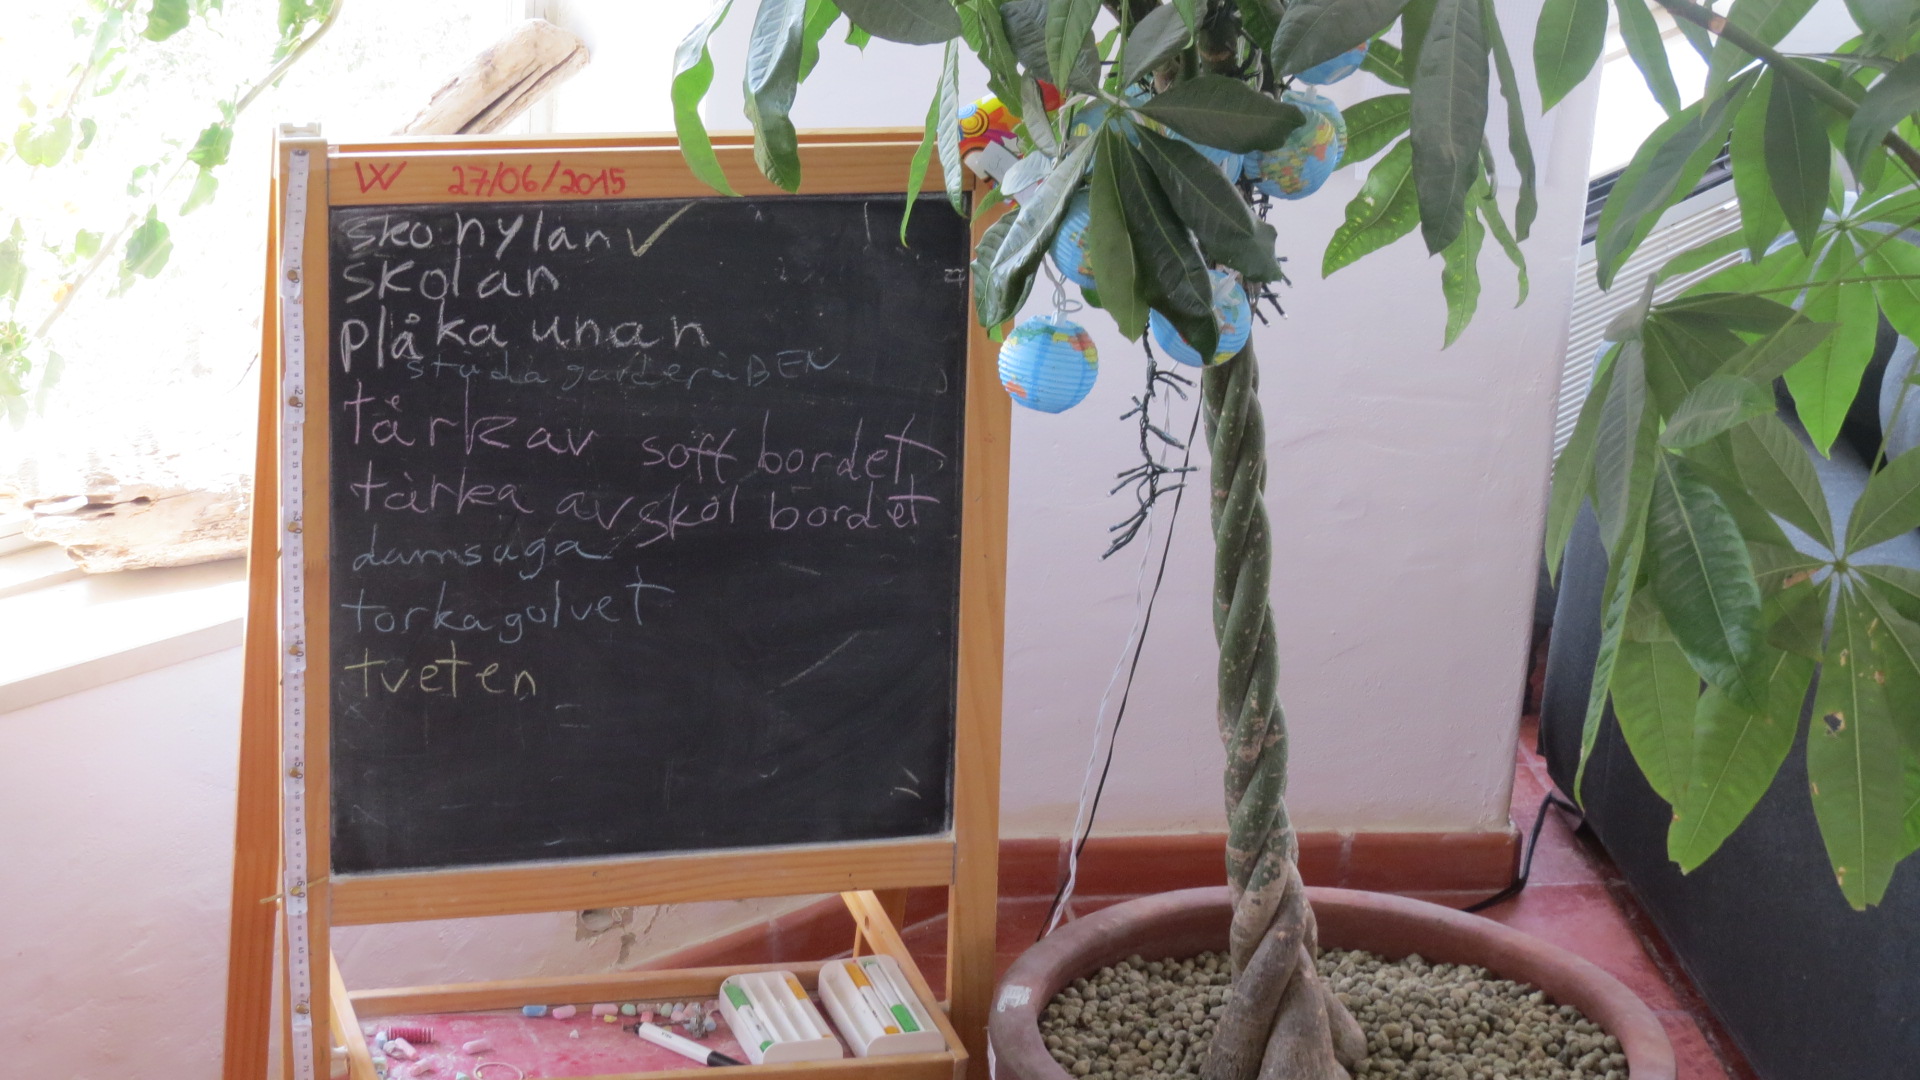 W 27/06/2015
skohylan ✓
skolan
plåka unan
städa garderåBEN
tårk av soff bordet
tårka av skol bordet
damsuga
torka golvet
tveten